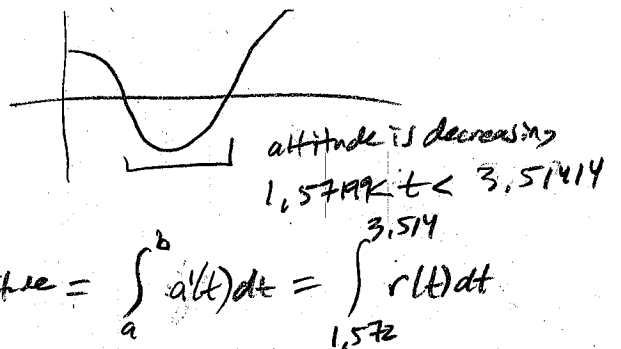 altitude is decreasing
1.57199< t < 3.51414
= ∫_a^b a'(t)dt = ∫_{1.572}^{3.514} r(t)dt